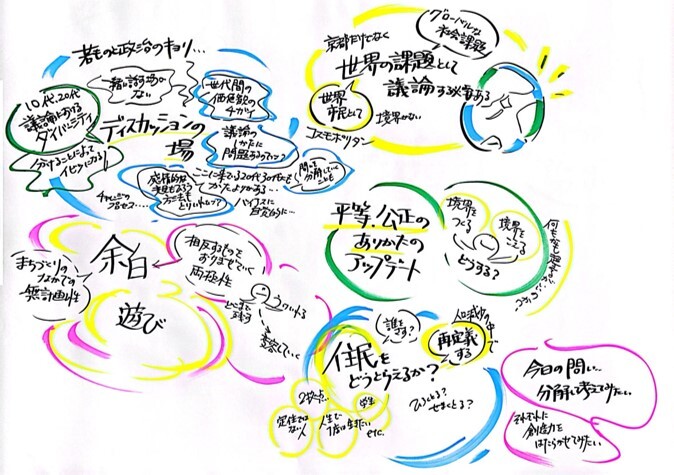 若ものと政治のキョリ…
若者が話す場が
ない
世代間の
価値観の
ちがい
10代、20代
議論における
ダイバーシティ
ディスカッションの
場
議論の
しかたに
問題あるのでは?
分けることによって
イビツになる
発信的な
ここに来てる20代30代も
かたよりがある…
問いを
分解していく
ことも
バイアスに
自覚的に…
グローバルな
社会課題
京都だけでなく
世界の課題として
議論する必要ある
世界
市民として
境界がない
コスモポリタン
余白
相反するものを
おりまぜていく
両極性
まちづくりの
なかでの
無計画性
遊び
どこまで
残す
平等、公正の
ありかたの
アップデート
境界を
つくる
境界を
こえる
どうする?
誰を
さす?
人口減少の中で
再定義
する
住民を
どうとらえるか?
2拠点…
学生
定住では
ない人
人生で
1度は住みたい
etc.
ひろくとる?
せまくとる?
今日の問い…
分解して考えてみたい
それぞれに
創造力を
はたらかせてみたい